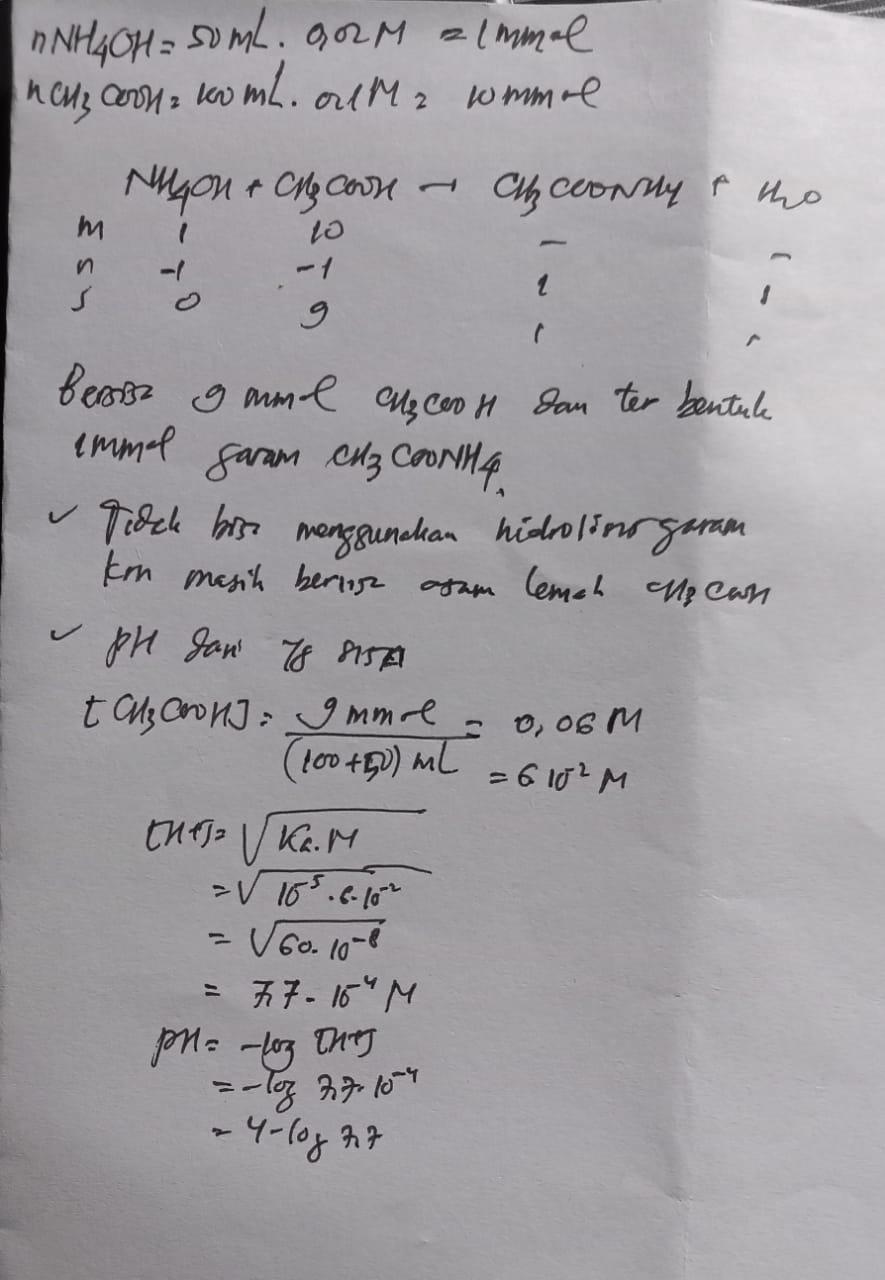 nNH4OH = 50 mL . 0,02 M = 1 mmol
nCH3COOH = 100 mL . 0,1 M = 10 mmol
NH4OH + CH3COOH → CH3COONH4 + H2O
m 1 10 - -
n -1 -1 1 1
s 0 9 1 1
Bersisa 9 mmol CH3COOH dan terbentuk
1 mmol garam CH3COONH4,
✓ Tidak bisa menggunakan garam
krn masih bersisa asam lemah CH3COOH
✓ pH dari sisa
[CH3COOH] = 9 mmol = 0,06 M
(100+50) mL = 6 10^-2 M
[H+] = √Ka.M
= √10^-5 . 6. 10^-2
= √60. 10^-8
= 7,7 . 10^-4 M
pH = -log [H+]
= -log 7,7. 10^-4
= 4 - log 7,7